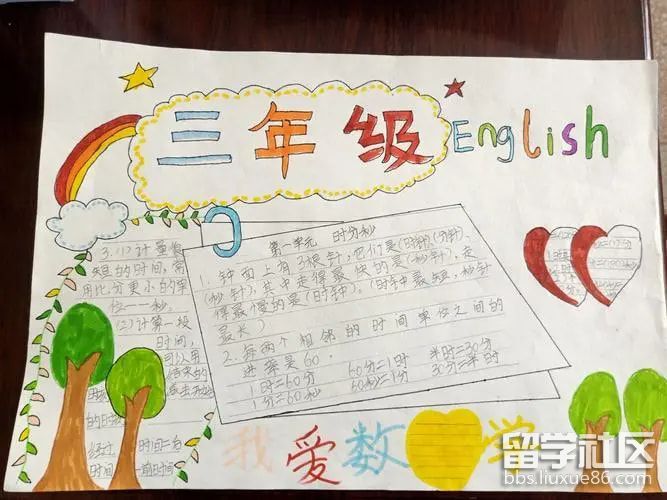 三年级 English
第一单元 时分秒
1. 钟面上有3根针,它们是(时针)、(分针)、
(秒针),其中走得最快的是(秒针),走
得最慢的是(时针)。(时针最短,秒针
最长)
2. 每两个相邻的时间单位之间的
进率是60.
1时=60分 60分=1时 半时=30分
1分=60秒 60秒=1分 30分=半时
3.(1)计量很
短的时间,常
用比分更小的单
位——秒。
(2)计算一段
时间,
我爱数学
留学社区
bbs.liuxue86.com